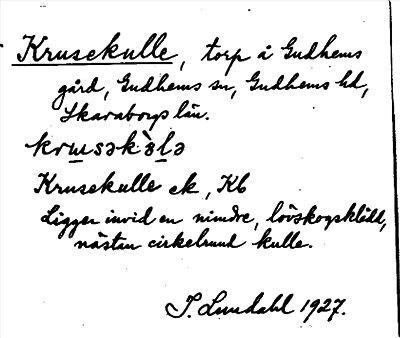 Krusekulle, torp å Gudhems
gård, Gudhems sn, Gudhems hd,
Skaraborgs län.
krɯsəkə̀lə
Krusekulle ek, Kb
Ligger invid en mindre, lövskogsklädd,
nästan cirkelrund kulle.
I. Lundahl 1927.